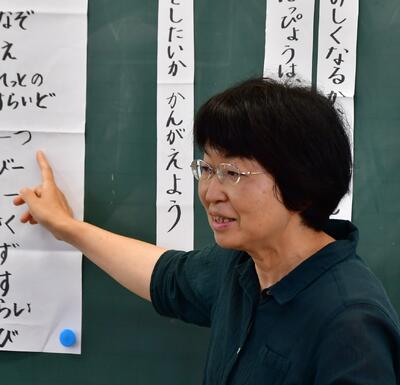 しくなるか
っぴょうは、
したいか かんがえよう
なぞ
え
れっとの
らいど
ーつ
びー
ー
く
ず
す
らい
び